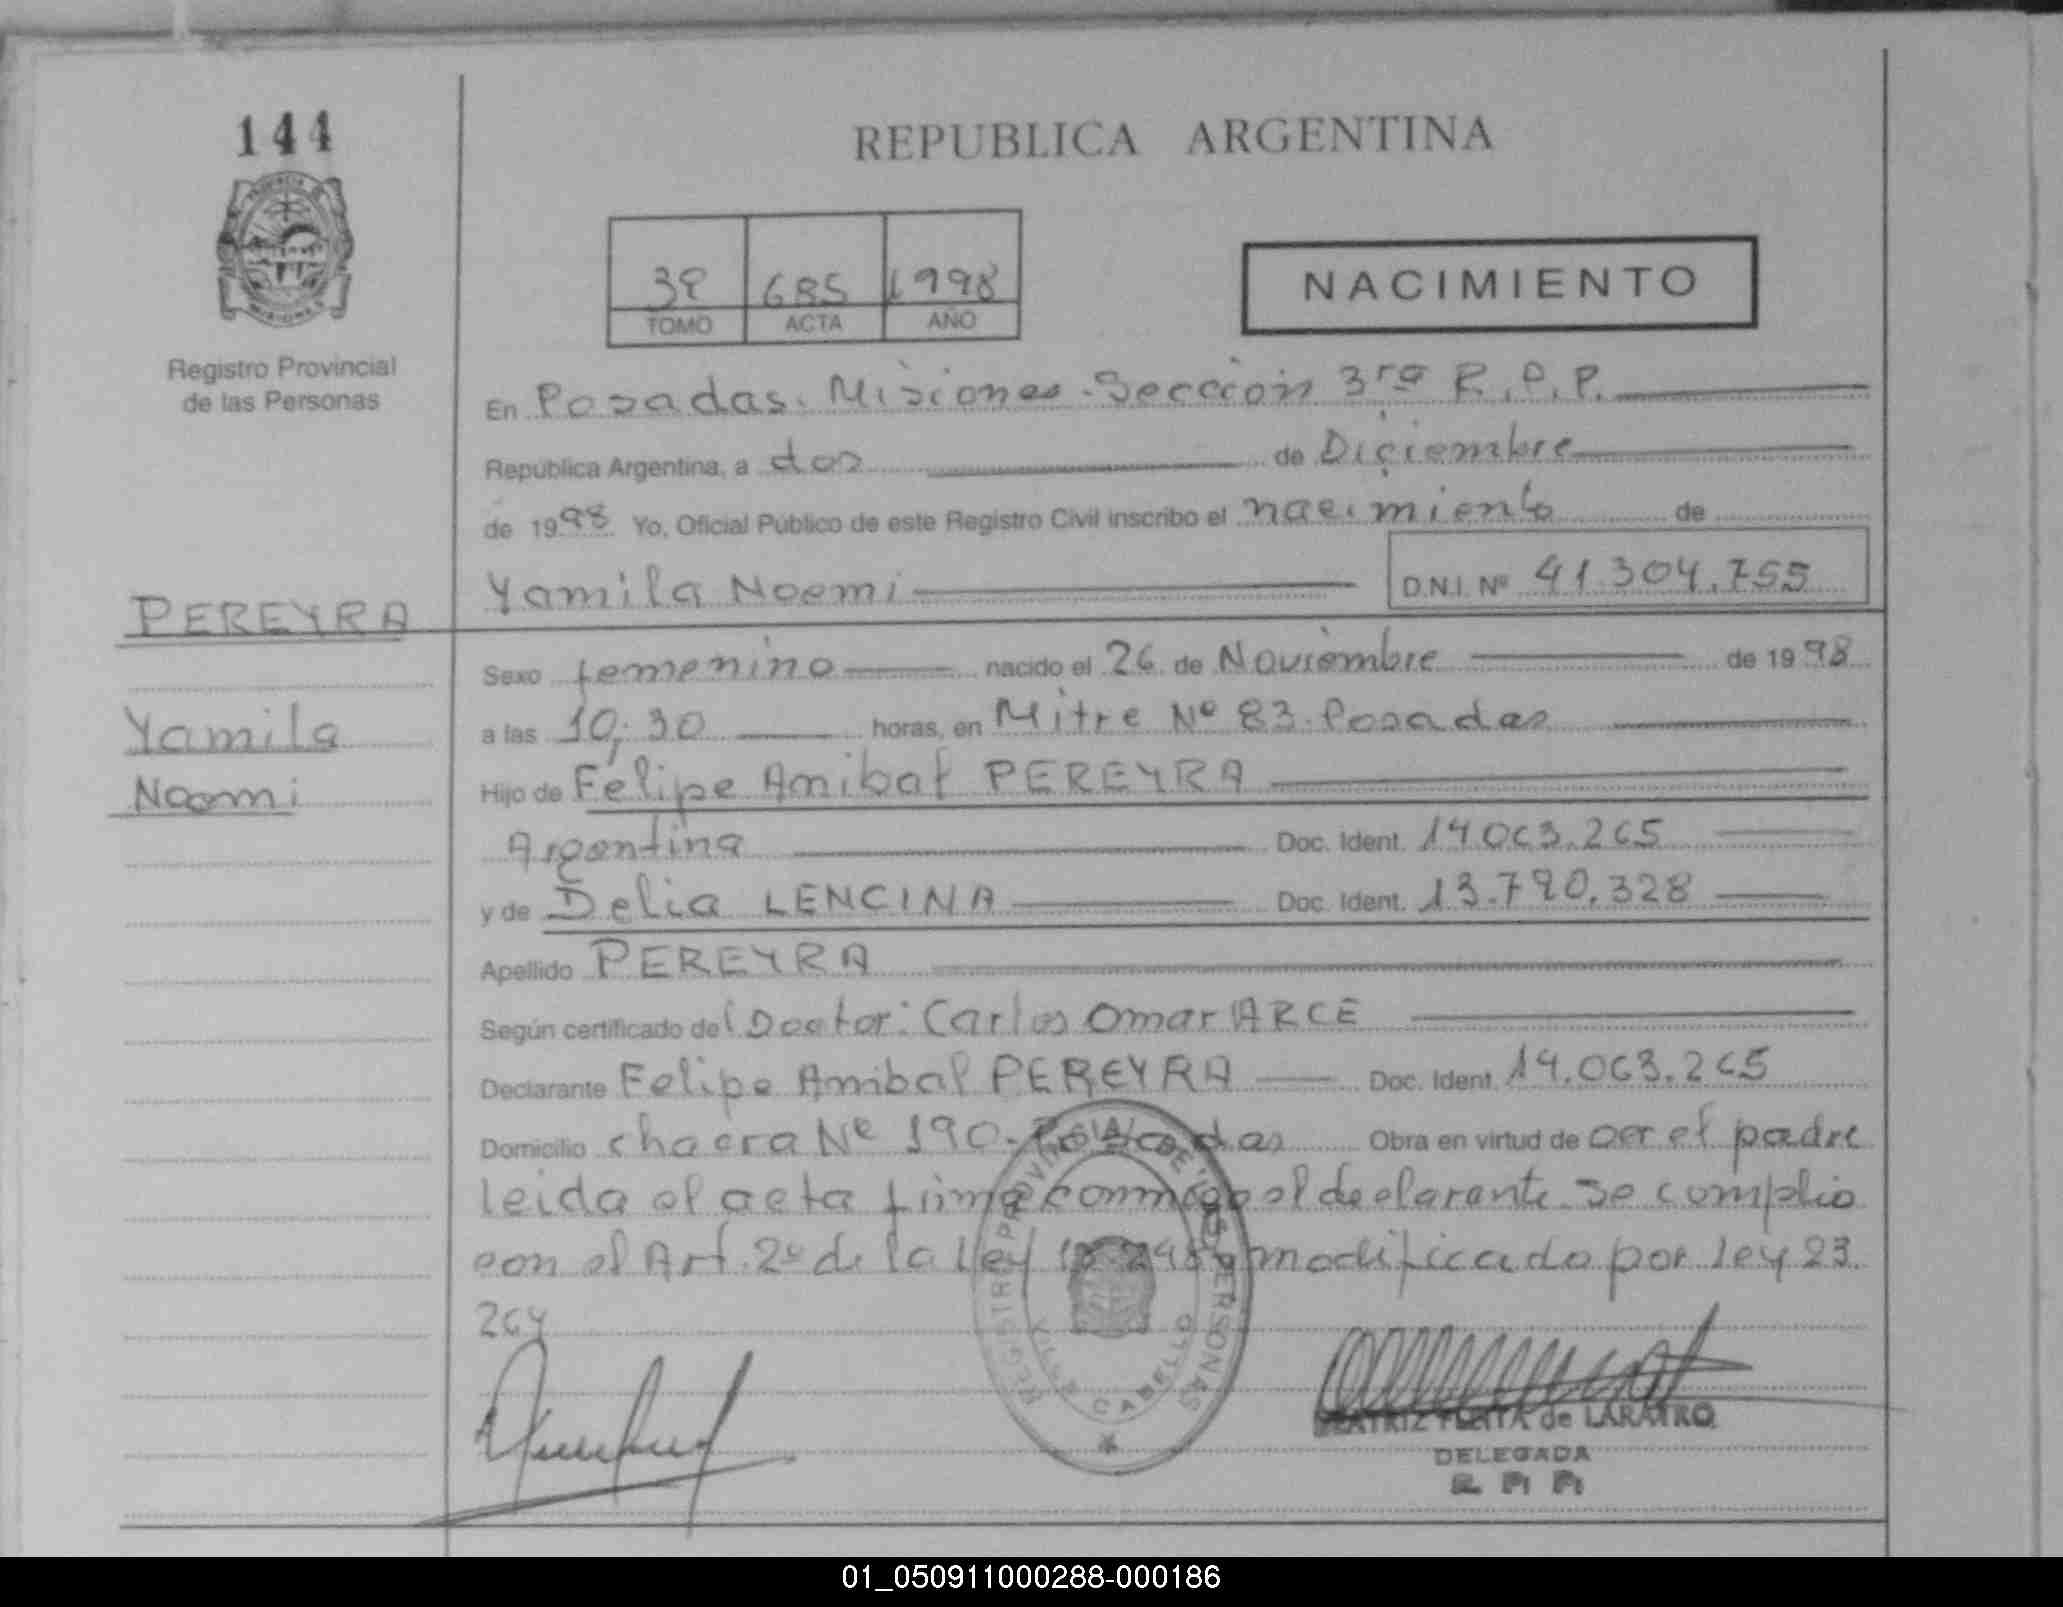 144
REPUBLICA ARGENTINA
3º 685 1998
TOMO ACTA AÑO
NACIMIENTO
Registro Provincial
de las Personas
En Posadas. Misiones. Sección 3ra R.P.P.
República Argentina, a dos de Diciembre
de 1998 Yo, Oficial Público de este Registro Civil inscribo el nacimiento de
Yamila Noemi D.N.I. Nº 41.304.755
PEREYRA
Sexo femenino nacido el 26 de Noviembre de 1998
Yamila
a las 10,30 horas, en Mitre Nº 83. Posadas
Noemi
Hijo de Felipe Anibal PEREYRA
Argentina Doc. Ident. 14.063.265
y de Delia LENCINA Doc. Ident. 13.790.328
Apellido PEREYRA
Según certificado del Doctor: Carlos Omar ARCE
Declarante Felipe Anibal PEREYRA Doc. Ident. 14.063.265
Domicilio chacra Nº 190. Posadas Obra en virtud de ser el padre
leida el acta firma conmigo el declarante. Se complio
con el Art. 2º de la Ley modificado por ley 23.
264
REGISTRO PROVINCIAL DE LAS PERSONAS
VILLA CABELLO
BEATRIZ de LARATRO
DELEGADA
01_050911000288-000186